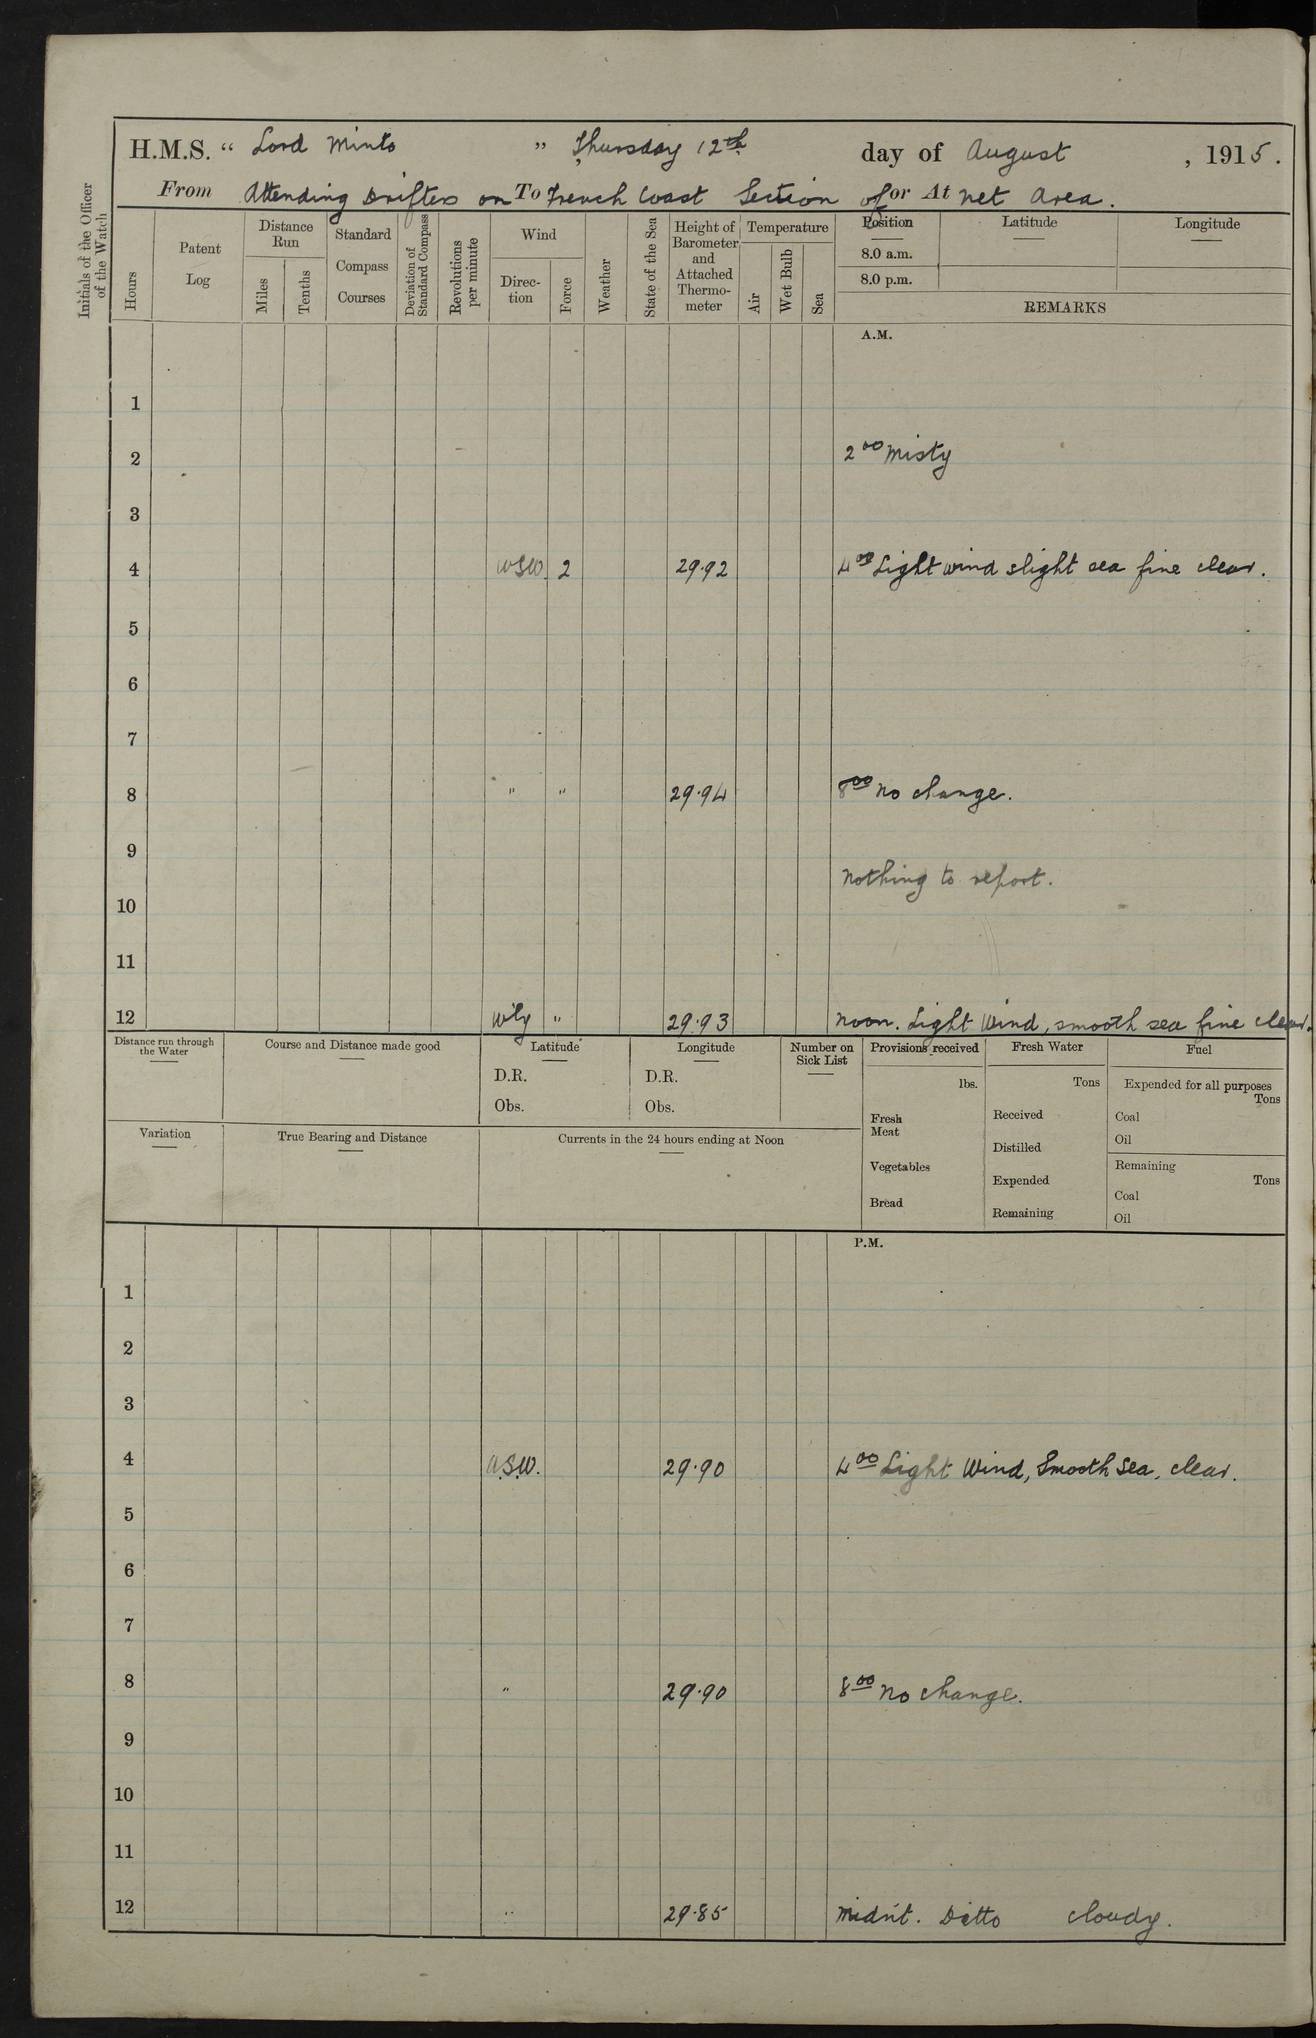 H.M.S. “ Lord Minto ” Thursday 12th day of August , 1915.
From Attending Drifters on To French Coast Section of or At Net Area.
Initials of the Officer of the Watch
Hours
Patent Log
Distance Run
Miles
Tenths
Standard Compass Courses
Deviation of Standard Compass
Revolutions per minute
Wind
Direction
Force
Weather
State of the Sea
Height of Barometer and Attached Thermometer
Temperature
Air
Wet Bulb
Sea
Position Latitude Longitude
8.0 a.m.
8.0 p.m.
REMARKS
A.M.
1
2 2 00 Misty
3
4 WSW 2 29.92 4 00 Light wind slight sea fine clear.
5
6
7
8 " " 29.94 8 00 No change.
9
Nothing to report.
10
11
12 W'ly " 29.93 Noon. Light Wind, smooth sea fine clear.
Distance run through the Water
Course and Distance made good
Latitude
D.R.
Obs.
Longitude
D.R.
Obs.
Number on Sick List
Provisions received
lbs.
Fresh Meat
Vegetables
Bread
Fresh Water
Tons
Received
Distilled
Expended
Remaining
Fuel
Expended for all purposes
Tons
Coal
Oil
Remaining
Tons
Coal
Oil
Variation
True Bearing and Distance
Currents in the 24 hours ending at Noon
P.M.
1
2
3
4 W.S.W. 29.90 4 00 Light Wind, Smooth Sea, clear.
5
6
7
8 " 29.90 8 00 No change.
9
10
11
12 " 29.85 Midn't. Ditto cloudy.